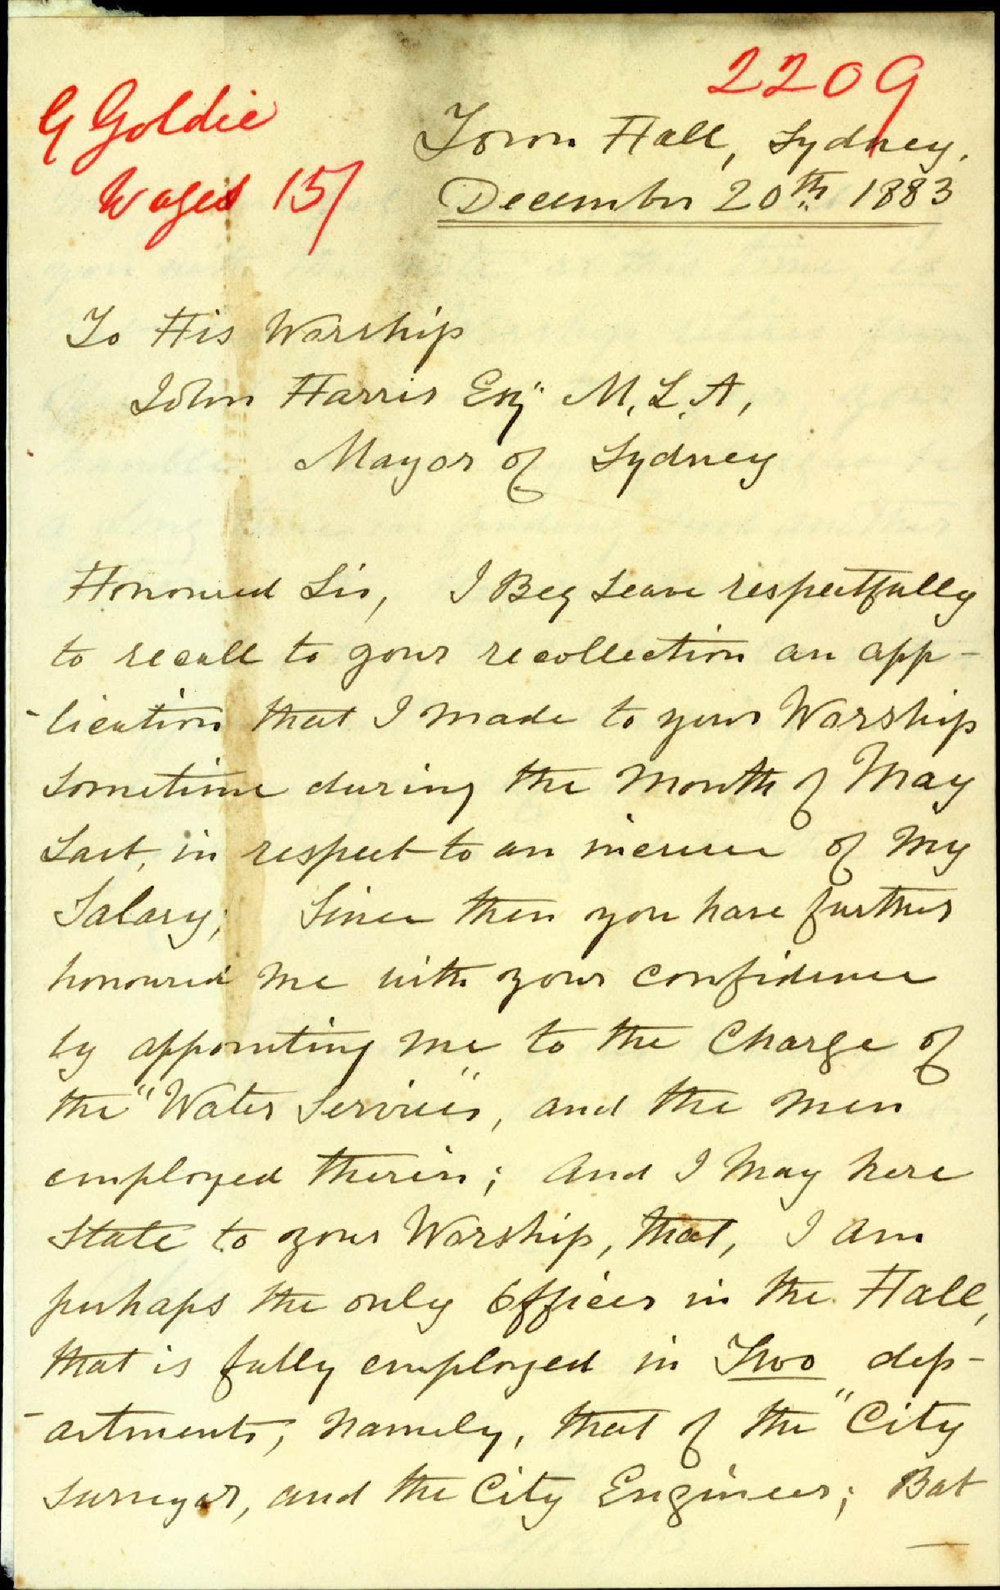 2209
G Goldie
Wages 15/
Town Hall, Sydney.
December 20th 1883
To His Worship
John Harris Esq M.L.A,
Mayor of Sydney
Honoured Sir, I Beg Leave respectfully
to recall to your recollection an app-
-lication that I made to your Worship
Sometime during the Month of May
Last, in respect to an increase of My
Salary; Since then you have further
honoured Me with your Confidence
by appointing Me to the Charge of
the "Water Services", and the Men
employed therin; And I May here
State to your Worship, that, I am
perhaps the only Officer in the Hall,
that is fully employed in Two dep-
-artments, Namely, that of the "City
Surveyor, and the City Engineer; But